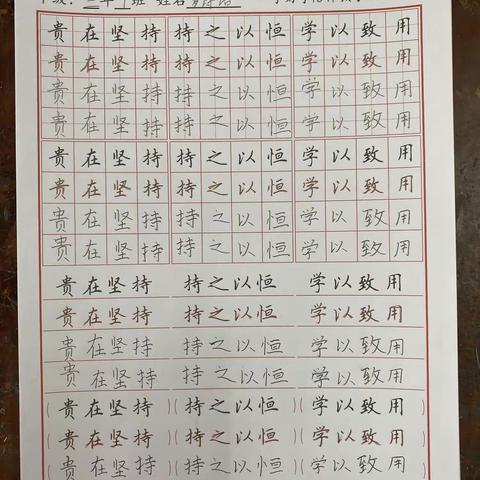 班 姓名
贵在坚持持之以恒学以致用
贵在坚持持之以恒学以致用
贵在坚持持之以恒学以致用
贵在坚持持之以恒学以致用
贵在坚持持之以恒学以致用
贵在坚持持之以恒学以致用
贵在坚持持之以恒学以致用
贵在坚持持之以恒学以致用
贵在坚持 持之以恒 学以致用
贵在坚持 持之以恒 学以致用
贵在坚持 持之以恒 学以致用
贵在坚持 持之以恒 学以致用
(贵在坚持)(持之以恒)(学以致用)
(贵在坚持)(持之以恒)(学以致用)
(贵在坚持)(持之以恒)(学以致用)